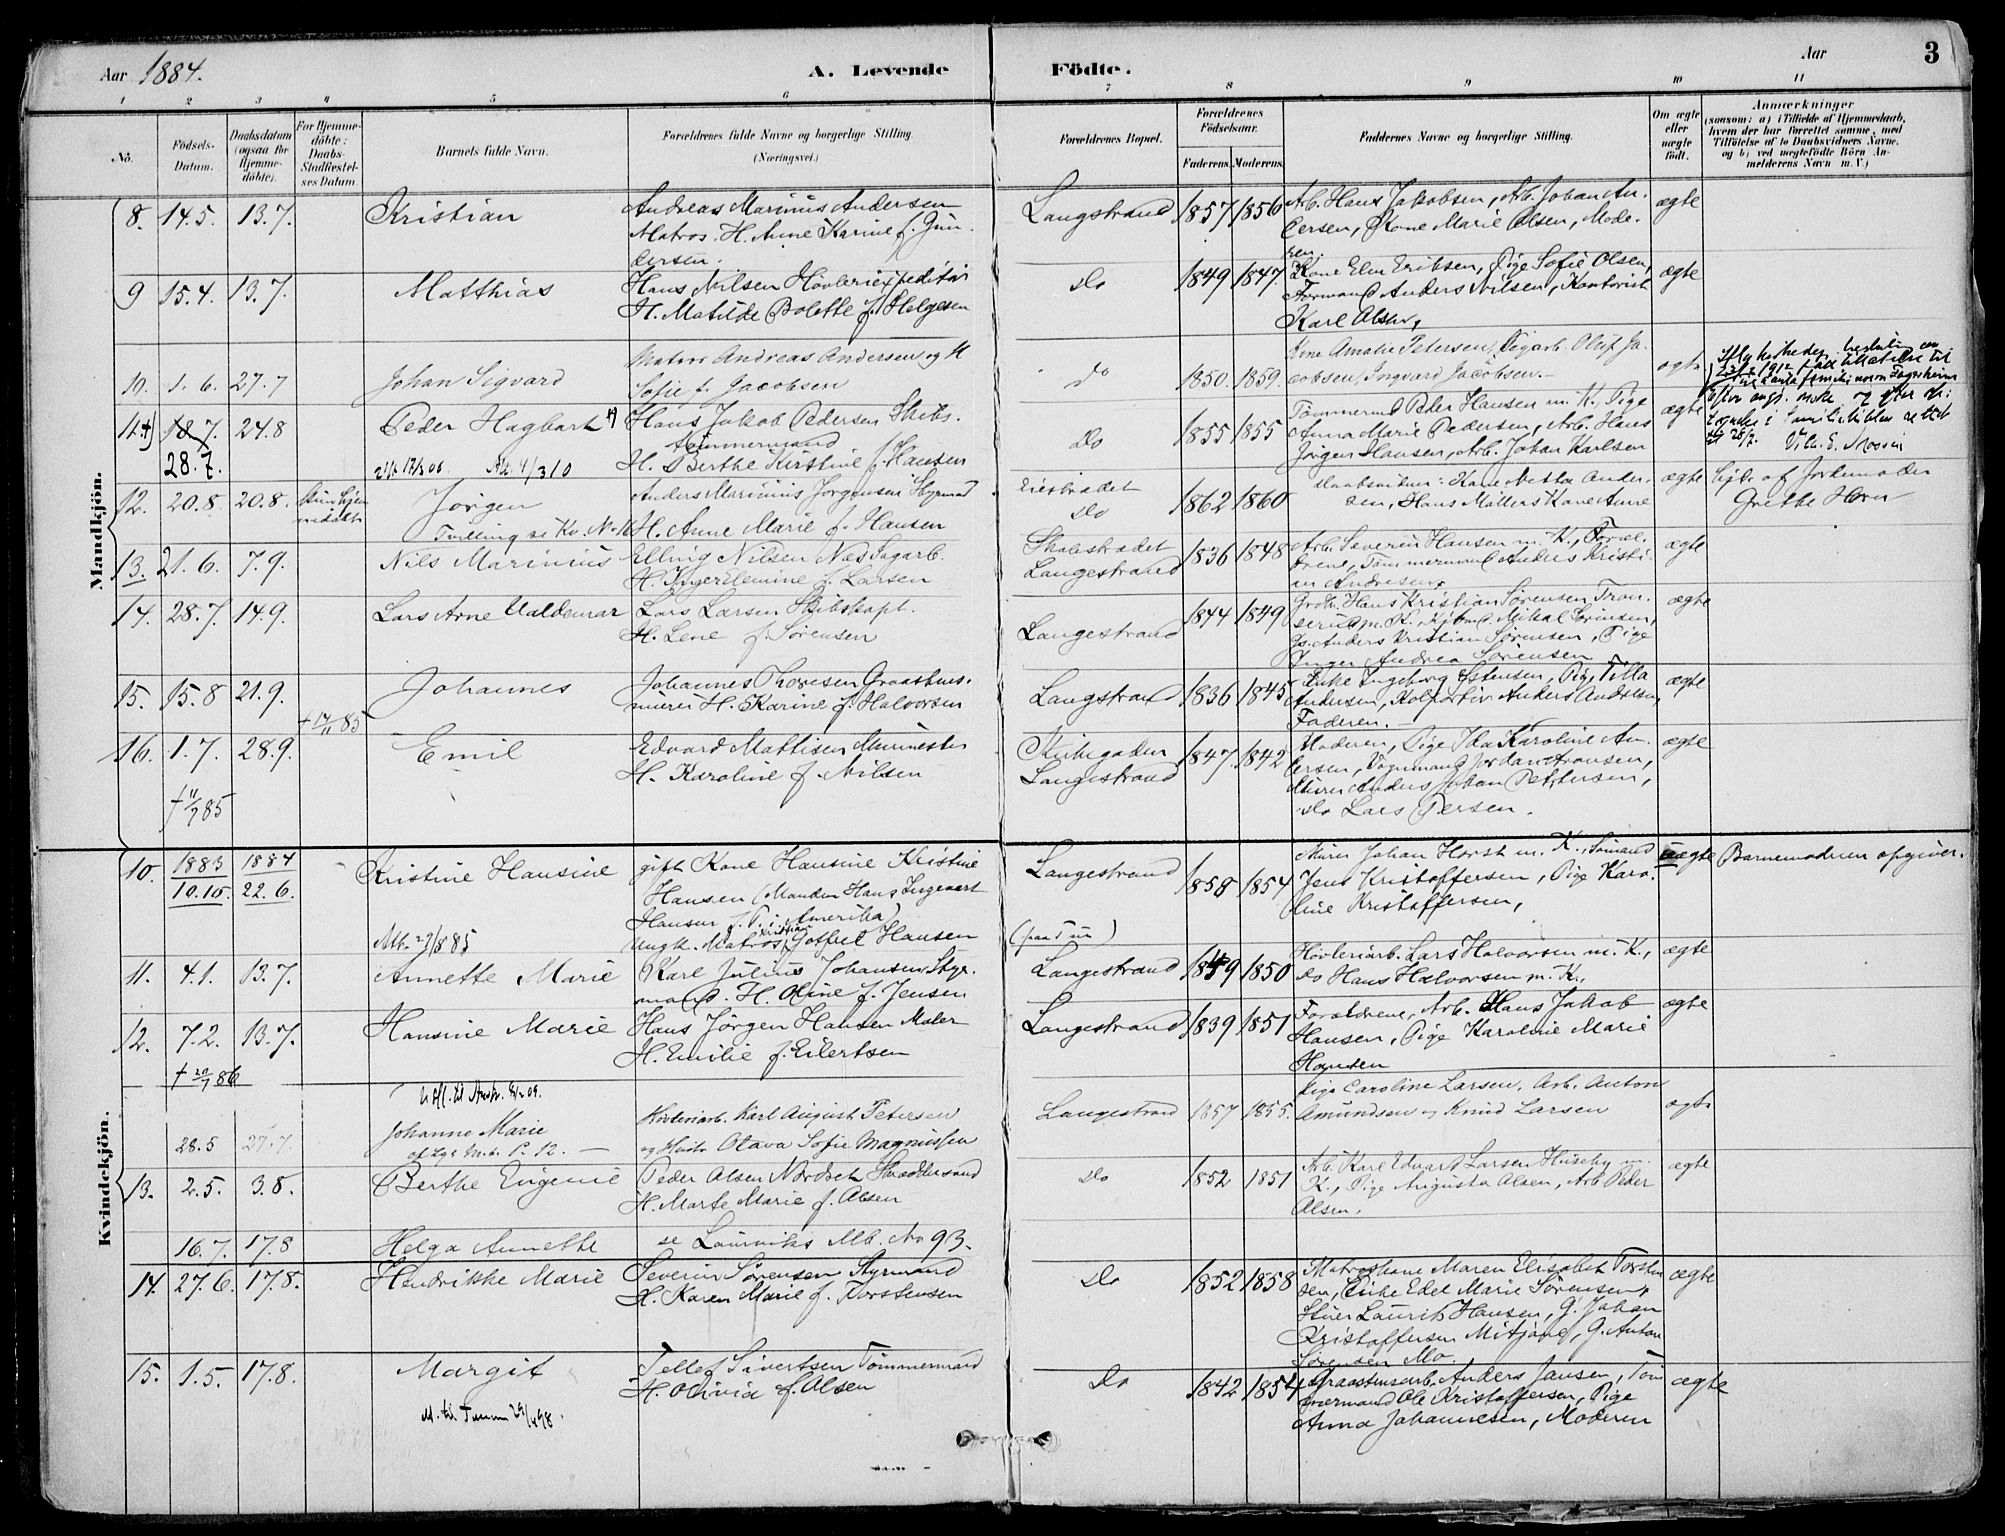 Aar 1884.
A. Levende Födte.
Aar
3
1 2 3 4 5 6 7 8 9 10 11
No.
Födsels-Datum.
Daabsdatum (ogsaa for Hjemmedöbte).
For Hjemmedöbte: Daabs-Stadfæstelses Datum
Barnets fulde Navn.
Forældrenes fulde Navne og borgerlige Stilling.
(Næringsvei.)
Forældrenes Bopæl.
Forældrenes Födselsaar.
Faderens. Moderens.
Faddernes Navne og borgerlige Stilling.
Om ægte eller uægte födt.
Anmærkninger
(saasom: a) i Tilfælde af Hjemmedaab,
hvem der har forrettet samme, med
Tilföielse af to Daabsvidners Navne,
og b) ved uægtefödte Börn Anmelderens Navn m. V.)
Mandkjön.
8. 14.5. 13.7. Kristian
Andreas Marinius Andersen
Matros. H. Anne Karine f. Gundersen.
Langestrand 1857 1856
Arb. Hans Jakobsen, Arb. Johan Andersen, Kone Marie Olsen, Moderen.
ægte
9 15.4. 13.7. Matthias
Hans Nilsen Hövleriexpeditör
H. Matilde Bolette f. Helgesen
Do 1849 1847.
Kone Elen Eriksen, Pige Sofie Olsen,
Formand Anders Nilsen, Kontorist
Karl Olsen,
ægte
10. 1.6. 27.7 Johan Sigvard
Matros Andreas Andersen og H
Sofie f. Jacobsen
Do 1850. 1859.
Kone Amalie Petersen, Oluf Jacobsen, Ingvard Jacobsen.
ægte
11. 18.7. 28.7. 24.8 Peder Hagbart
Hans Jakob Pedersen Skibstömmermand
H. Berthe Kirstine f. Hansen
Do 1855 1855
Tömmermd Peder Hansen m. K., Pige
Anna Marie Pedersen, Arb. Hans
Jörgen Hansen, Arb. Johan Karlsen
ægte
12. 20.8. 20.8. Jörgen
Tvilling se Kv. No 16
Anders Marinius Jorgensen Styrmd
H. Anne Marie f. Hansen
Do 1862 1860
Kone Netta Andersen, Hans Möllers Kone Anne
ægte
Hjdt af Jordemoder
Grethe Horn
13. 21.6. 7.9. Nils Marinius
Elling Nilsen Næs Sagarb.
H. Inger Elemine f. Larsen
Langestrand 1836 1848
Arb. Severin Hansen m. K., Forældrene, Tömmermand Anders Kristian Andresen
ægte
14. 28.7. 14.9. Lars Arne Valdemar
Lars Larsen Skibskapt.
H. Lene f. Sörensen
Langestrand 1844 1849
Hans Kristian Sörensen
m. K., Mikal Sörensen,
Anders Kristian Sörensen, Pige
Inger Andrea Sörensen
ægte
15. 15.8 21.9. † 17/11 85 Johannes
Johannes Thoresen Graastensmurer H. Karine f. Halvorsen
Langestrand 1836 1845
Enke Ingeborg Estensen, Pige Tilla
Andersen, Kolportör Anders Andersen,
Faderen.
ægte
16. 1.7. 28.9. Emil
† 11/7 85
Edvard Mattisen Murmester
H. Karoline f. Nilsen
Kirkegaden
Langestrand 1847. 1842
Moderen, Pige Ida Karoline Andersen, Vognmand Jordan Aronsen,
Murer Anders Johan Pettersen,
Do Lars Persen.
ægte
Kvindekjön.
10. 1883 10.10. 1884 22.6. Kristine Hansine
gift Kone Hansine Kristine
Hansen (Manden Hans Ingevart
Hansen f. T. i Amerika)
Ungk. Matros Kristian Gotfred Hansen
Langestrand 1858 1854
Murer Johan Horst m. K., Sömand
Jens Kristoffersen, Pige Karoline Kristoffersen,
uægte Barnemoderen opgiver.
11. 4.1. 13.7. Annette Marie
Karl Julius Johansen Styrmand. H. Oline f. Jensen
Langestrand 1849 1850
Hövleriarb. Lars Halvorsen m. K.,
Do Hans Halvorsen m. K.,
ægte
12. 7.2. 13.7. Hansine Marie
† 20/7 86
Hans Jörgen Hansen Maler
H. Emilie f. Eilertsen
Langestrand 1839 1851
Forældrene, Arb. Hans Jakob
Hansen, Pige Karoline Marie
Hansen
ægte
28.5 27.7. Johanne Marie
Hövleriarb. Karl August Petersen
og Hustr Olava Sofie Magnussen
Langestrand 1857 1855.
Pige Caroline Larsen, Arb. Anton
Amundsen og Knud Larsen
ægte
13. 2.5. 3.8. Berthe Eugenie
Peder Olsen Nordset
H. Marte Marie f. Olsen
Do 1852 1851
Arb. Karl Edvart Larsen Huseby m.
K., Pige Augusta Olsen, Arb Peder
Olsen.
ægte
16.7. 17.8 Helga Annette
se Laurviks Mb. No 93.
14. 27.6. 17.8. Hendrikke Marie
Severin Sörensen Styrmand
H. Karen Marie f. Torstensen
Do 1852 1858
Matroskone Maren Elisabet Torstensen, Enke Edel Marie Sörensen,
Laurits Hansen, G. Johan
Kristoffersen, G. Anton
Sörensen Mo.
ægte
15. 1.5. 17.8. Margit
Tellef Sivertsen Tömmermand
H. Olivia f. Olsen
Do 1842 1854
Graastensarb. Anders Jansen, Tömmermand Ole Kristoffersen, Pige
Anna Johannesen, Moderen
ægte